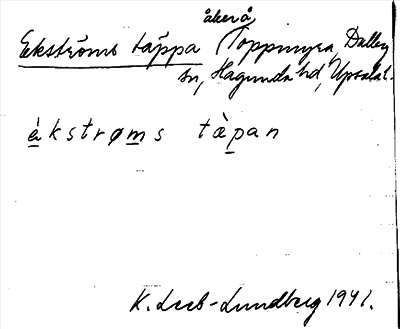 åker å
Ekströms täppa Toppmyra, Dalby
sn, Hagunda hd, Upsala l.
èkstrøms tæ̀pan
K. Leeb-Lundberg 1941.